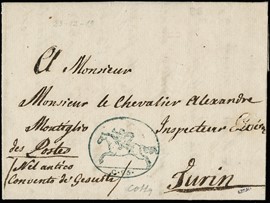 A Monsieur
Monsieur le Chevalier Alexandre
Montiglio Inspecteur
des Postes
(Nel antico
Convento de' Gesuiti)
Turin